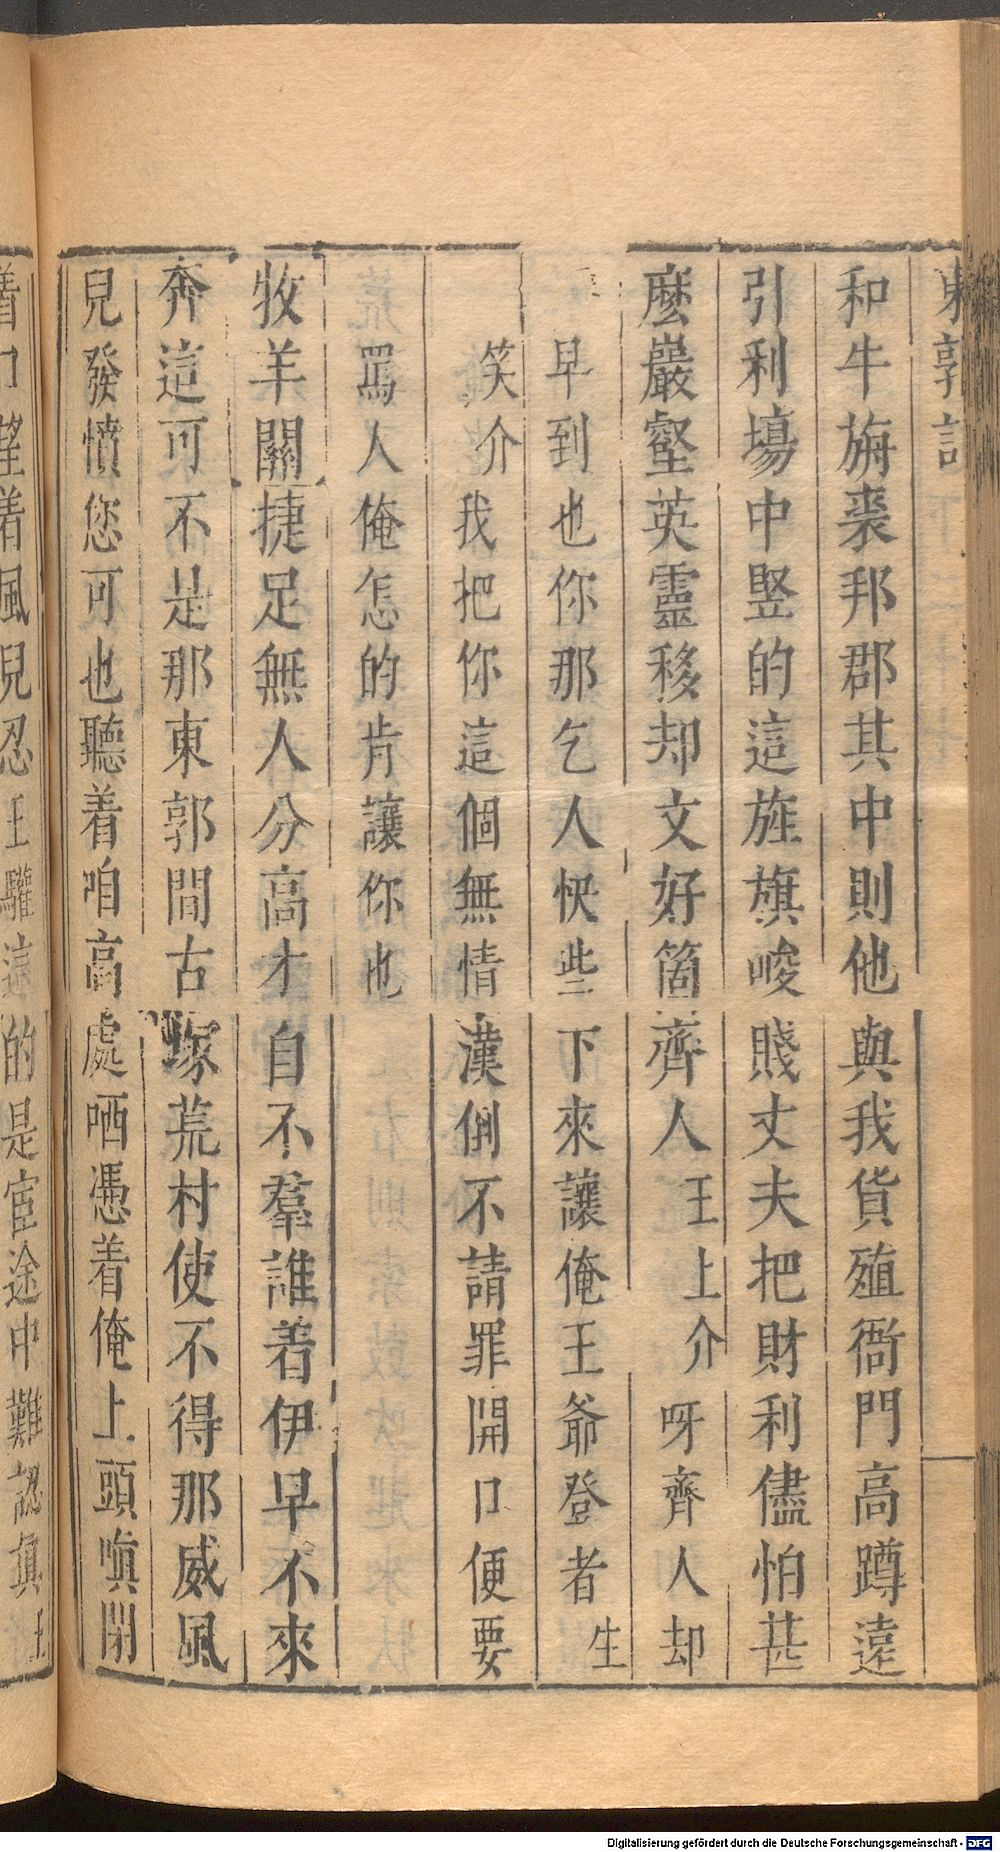 東郭記
和牛旃裘邦郡其中則他與我貨殖衙門高蹲遠
引利塲中竪的這旌旗峻賤丈夫把財利儘怕甚
麽巖壑英靈移却文好箇齊人王上介呀齊人却
早到也你那乞人快些下來讓俺王爺登者生
笑介我把你這個無情漢倒不請罪開口便要
罵人俺怎的肯讓你也
牧羊關捷足無人分高才自不羣誰着伊早不來
奔這可不是那東郭間古塚荒村使不得那威風
兒發憤您可也聽着咱高處哂憑着俺上頭嗔閉
着口望着風兒忍王驩這的是宦途中難認真王
Digitalisierung gefördert durch die Deutsche Forschungsgemeinschaft - DFG